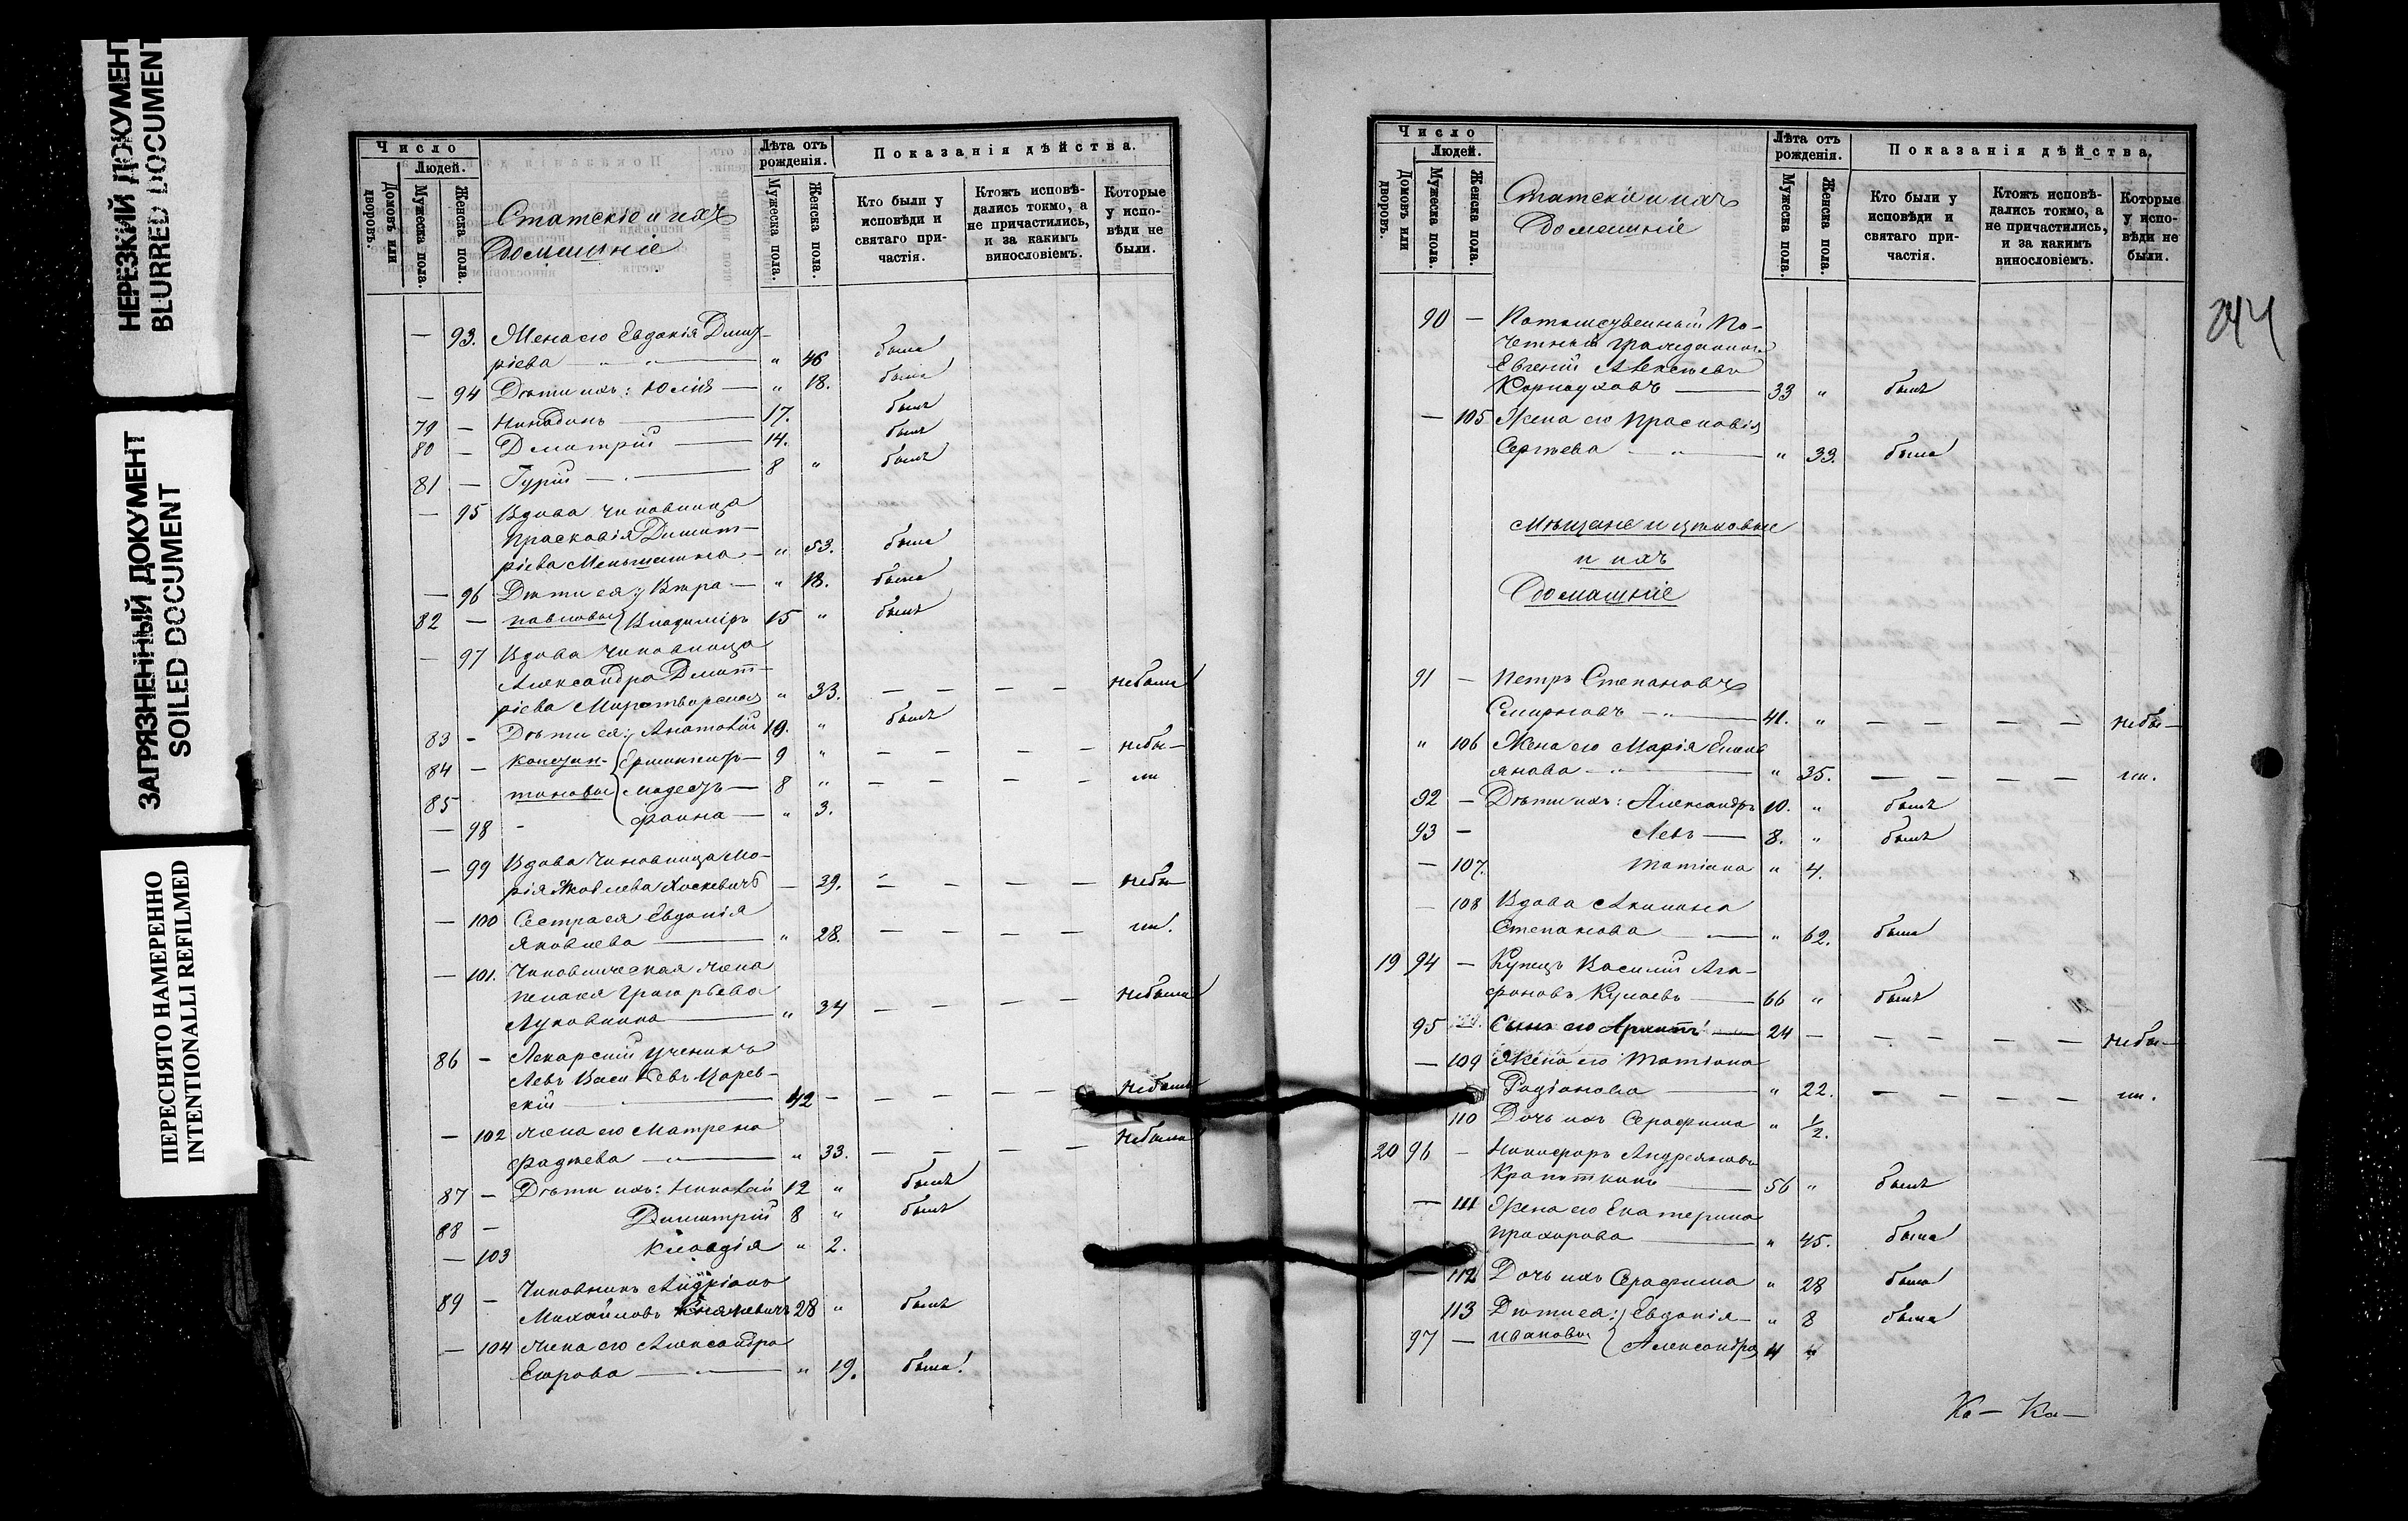 НЕРЕЗКИЙ ДОКУМЕНТ
BLURRED DOCUMENT
ЗАГРЯЗНЕННЫЙ ДОКУМЕНТ
SOILED DOCUMENT
ПЕРЕСНЯТО НАМЕРЕННО
INTENTIONALLI REFILMED
Число
Людей.
Домовъ или дворовъ.
Мужеска пола.
Женска пола.
Статскіе и ихъ
Домашніе
Лѣта отъ рожденія.
Мужеска пола.
Женска пола.
Показанія дѣйства.
Кто были у исповѣди и святаго причастія.
Ктожъ исповѣдались токмо, а не причастились, и за какимъ винословіемъ.
Которые у исповѣди не были.
— 93. Жена его Евдокія Дмит-
ріева — " 46 была
— 94 Дѣти ихъ: Юлія — " 18. была
79 — Никодимъ — 17. былъ
80 — Дмитрій — 14. былъ
81 — Гурій — 8 " былъ
— 95 Вдова чиновница
Прасковія Димит-
ріева Меньшикова — " 53. была
— 96 Дѣти ея: Вѣра — " 18. была
82 — Павловы Владиміръ 15 " былъ
— 97 Вдова чиновница
Александра Дмит-
ріева Миротворская " 33. — — — — небыла
83 — Дѣти ея: Анатолій 10. " былъ
84 — 9 " — — — — небы—
85 Модестъ — 8 " — — — —
— 98 - Фаина — " 3.
— 99 Вдова чиновница Ма-
рія Яковлева — 39. — — — — небы—
— 100 Сестра ея Евдокія
Яковлева — " 28. — — — —
— 101. Чиновническая жена
Пелагея Григорьева
Луковкина — " 34 — — — — небыла
86 — Лекарскій ученикъ
Левъ Васильевъ Царев-
скій — 42 — — — — — небылъ
— 102 жена его Матрена
Фадѣева — " 33. — — — — небыла
87 — Дѣти ихъ: Николай 12 " былъ
88 — Димитрій 8 " былъ
— 103 Клавдія " 2.
89 — Чиновникъ Андріанъ
Михайловъ 28 " былъ
— 104 жена его Александра
Егорова — " 19. была!
Число
Людей.
Домовъ или дворовъ.
Мужеска пола.
Женска пола.
Статскіе и ихъ
Домашніе
Лѣта отъ рожденія.
Мужеска пола.
Женска пола.
Показанія дѣйства.
Кто были у исповѣди и святаго причастія.
Ктожъ исповѣдались токмо, а не причастились, и за какимъ винословіемъ.
Которые у исповѣди не были.
244
90 — Потомственный По-
четный гражданинъ
Евгеній Алексѣевъ
Карнауховъ — 33 " былъ
— 105 Жена его Прасковія
Сергѣева — " 33. была
Мѣщане и цѣховые
и ихъ
Домашніе
91 — Петръ Степановъ
Смирновъ — 41. " — — — — небы—
" 106 Жена его Марія Емель
янова — " 35. — — — —
92 — Дѣти ихъ: Александръ 10. " былъ
93 — Левъ — 8. " былъ
— 107. Татіана " 4.
— 108 Вдова Акилина
Степанова — " 62. была
19 94 — Купецъ Василій Ага-
фоновъ Кулаевъ — 66 " былъ
95 Сынъ его — 24 — — — — — небы—
— 109 Жена его Татіана
Родіонова — " 22. — — — —
110 Дочь ихъ Серафима " ½.
20 96 — Никифоръ Андреяновъ
Кропоткинъ — 56 " былъ
— 111 Жена его Екатерина
Прохорова — " 45. была
— 112 Дочь ихъ Серафима " 28 была
113 Дѣти ея: Евдокія — " 8 была
97 — Ивановы Александръ 4
Ка— Ка—